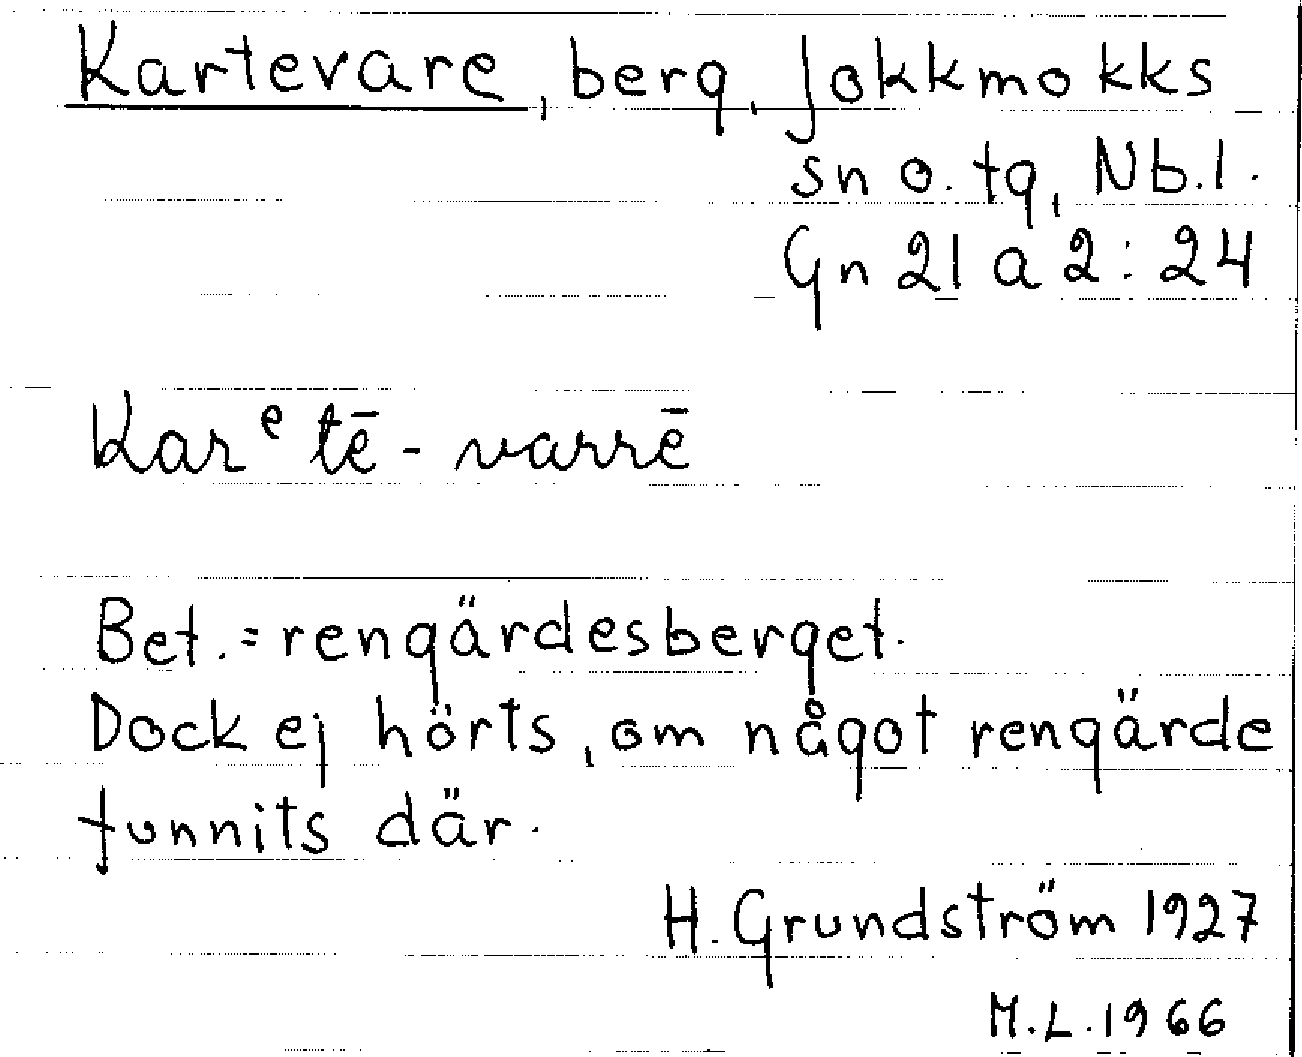 Kartevare, berg, Jokkmokks
sn o. tg, Nb.l.
Gn 21 a 2:24
Karᵉtē-varrē
Bet.=rengärdesberget.
Dock ej hörts, om något rengärde
funnits där.
H. Grundström 1927
M.L. 1966